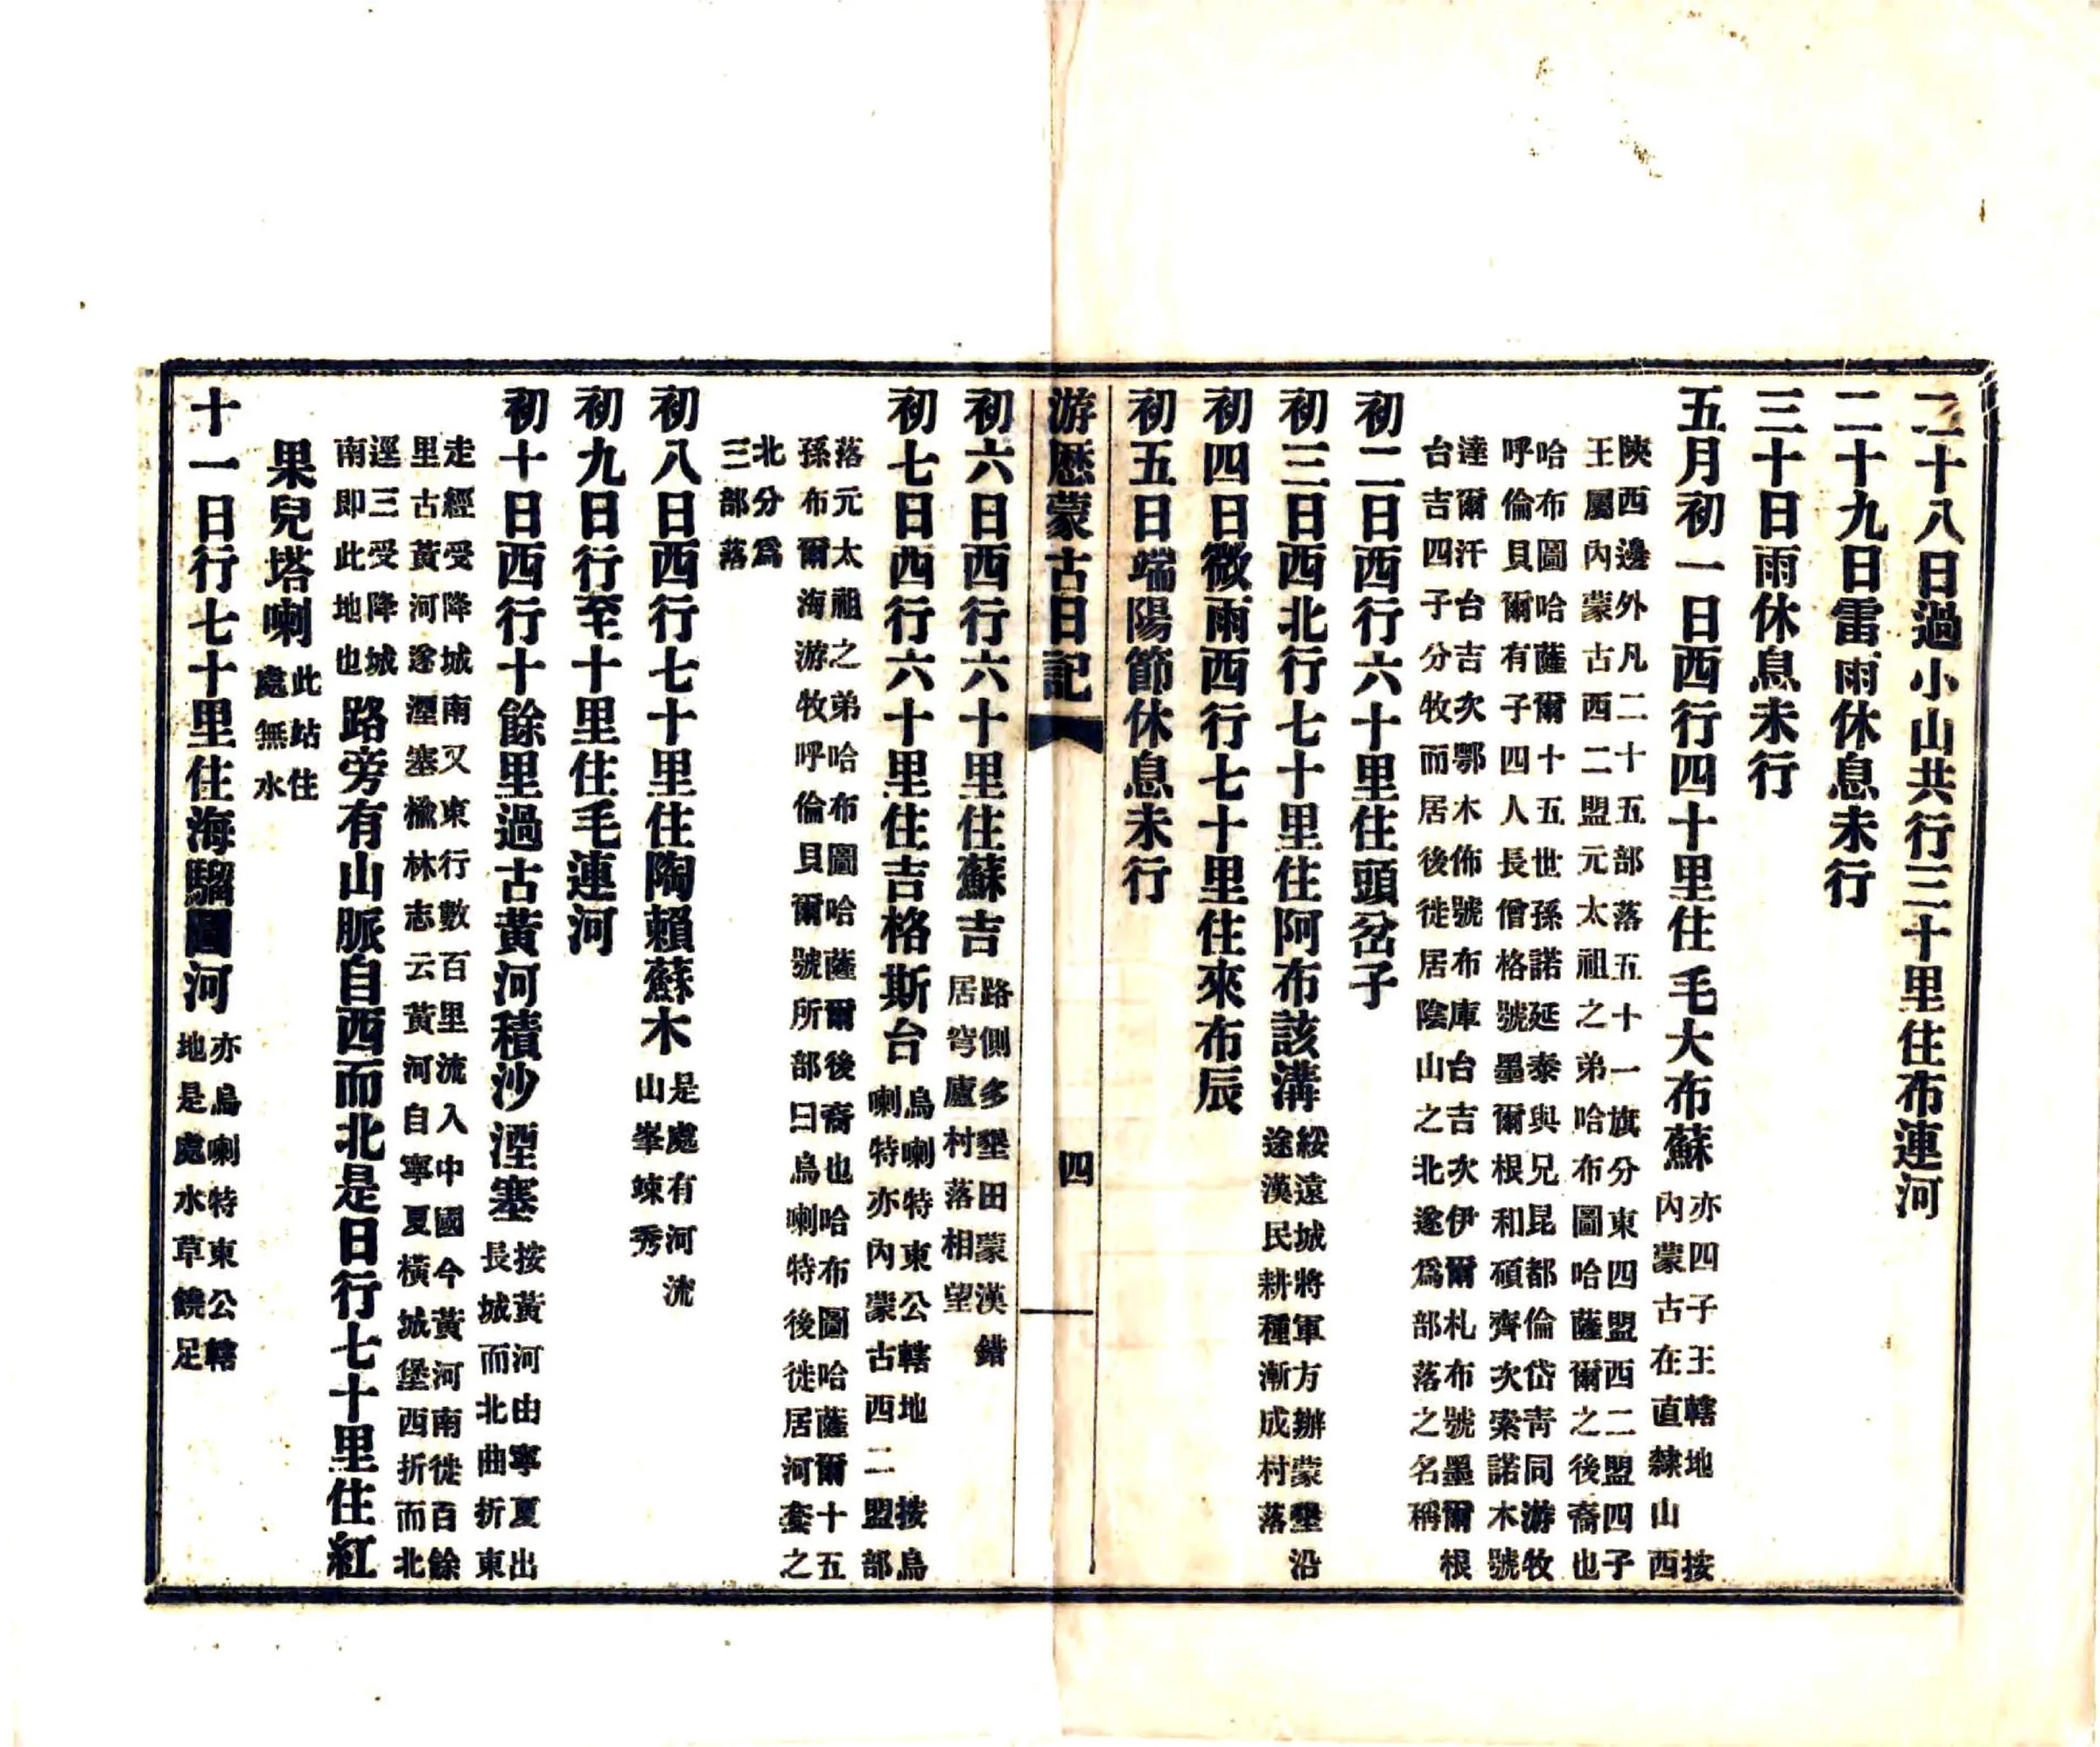 二十八日過小山共行三十里住布連河
二十九日雷雨休息未行
三十日雨休息未行
五月初一日西行四十里住毛大布蘇亦四子王轄地 按
內蒙古在直隸山西
陝西邊外凡二十五部落五十一旗分東四盟西二盟四子
王屬內蒙古西二盟元太祖之弟哈布圖哈薩爾之後裔也
哈布圖哈薩爾十五世孫諾延泰與兄昆都倫岱青同游牧
呼倫貝爾有子四人長僧格號墨爾根和碩齊次索諾木號
達爾汗台吉次鄂木佈號布庫台吉次伊爾札布號墨爾根
台吉四子分牧而居後徙居陰山之北遂爲部落之名稱
初二日西行六十里住頭岔子
初三日西北行七十里住阿布該溝綏遠城將軍方辦蒙墾沿
途漢民耕種漸成村落
初四日微雨西行七十里住來布辰
初五日端陽節休息未行
游歷蒙古日記 四
初六日西行六十里住蘇吉路側多墾田蒙漢錯
居穹廬村落相望
初七日西行六十里住吉格斯台烏喇特東公轄地 按烏
喇特亦內蒙古西二盟部
落元太祖之弟哈布圖哈薩爾後裔也哈布圖哈薩爾十五
孫布爾海游牧呼倫貝爾號所部曰烏喇特後徙居河套之
北分爲
三部落
初八日西行七十里住陶賴蘇木是處有河流
山峯竦秀
初九日行至十里住毛連河
初十日西行十餘里過古黃河積沙湮塞按黃河由寧夏出
長城而北曲折東
走經受降城南又東行數百里流入中國今黃河南徙百餘
里古黃河遂湮塞楡林志云黃河自寧夏橫城堡西折而北
逕三受降城
南即此地也路旁有山脈自西而北是日行七十里住紅
果兒塔喇此站住
處無水
十一日行七十里住海騮圖河亦烏喇特東公轄
地是處水草饒足